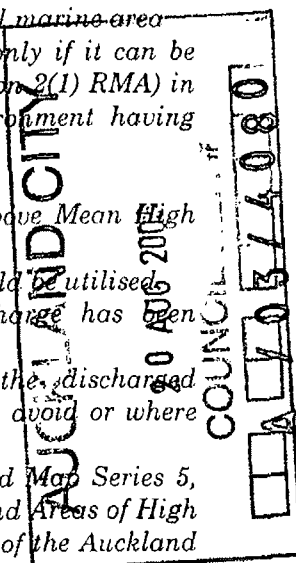 l marine area
only if it can be
on 2(1) RMA) in
ronment having
bove Mean High
ld be utilised
harge has been
the discharged
avoid or where
d Map Series 5,
nd Areas of High
of the Auckland
AUCKLAND CITY
20 AUG 200
COUNCIL
A / 03 / 4080